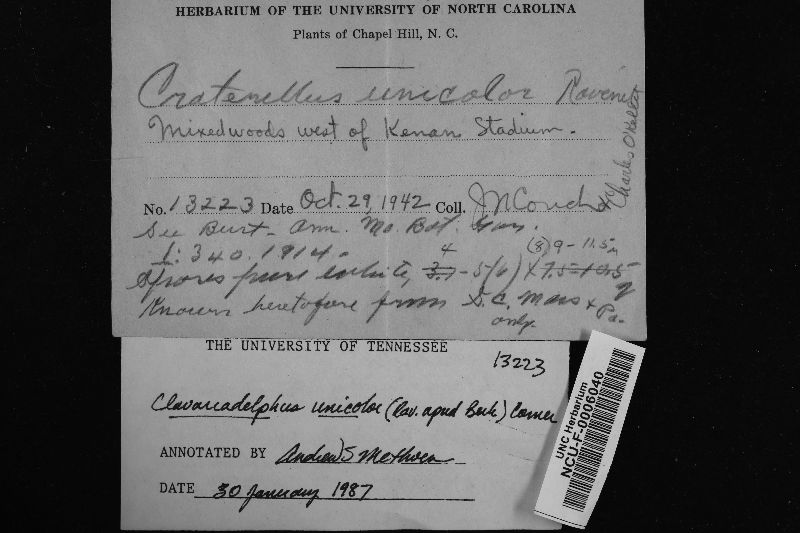 HERBARIUM OF THE UNIVERSITY OF NORTH CAROLINA
Plants of Chapel Hill, N. C.
Craterellus unicolor Ravenel
Mixed woods west of Kenan Stadium.
No. 13223 Date Oct. 29, 1942 Coll. J N Couch & Charles O'Kelley
See Burt - Ann. Mo. Bot. Gar.
1: 340. 1914.
Spores pure white, 4 3.7-5(6) X 7.5-10.5 (8) 9-11.5 μ
Known heretofore from S.C. Mass & Pa. only.
THE UNIVERSITY OF TENNESSEE
13223
Clavariadelphus unicolor (Rav. apud Berk.) Corner
ANNOTATED BY Andrew S Methven
DATE 30 January 1987
UNC Herbarium
NCU-F-0006040